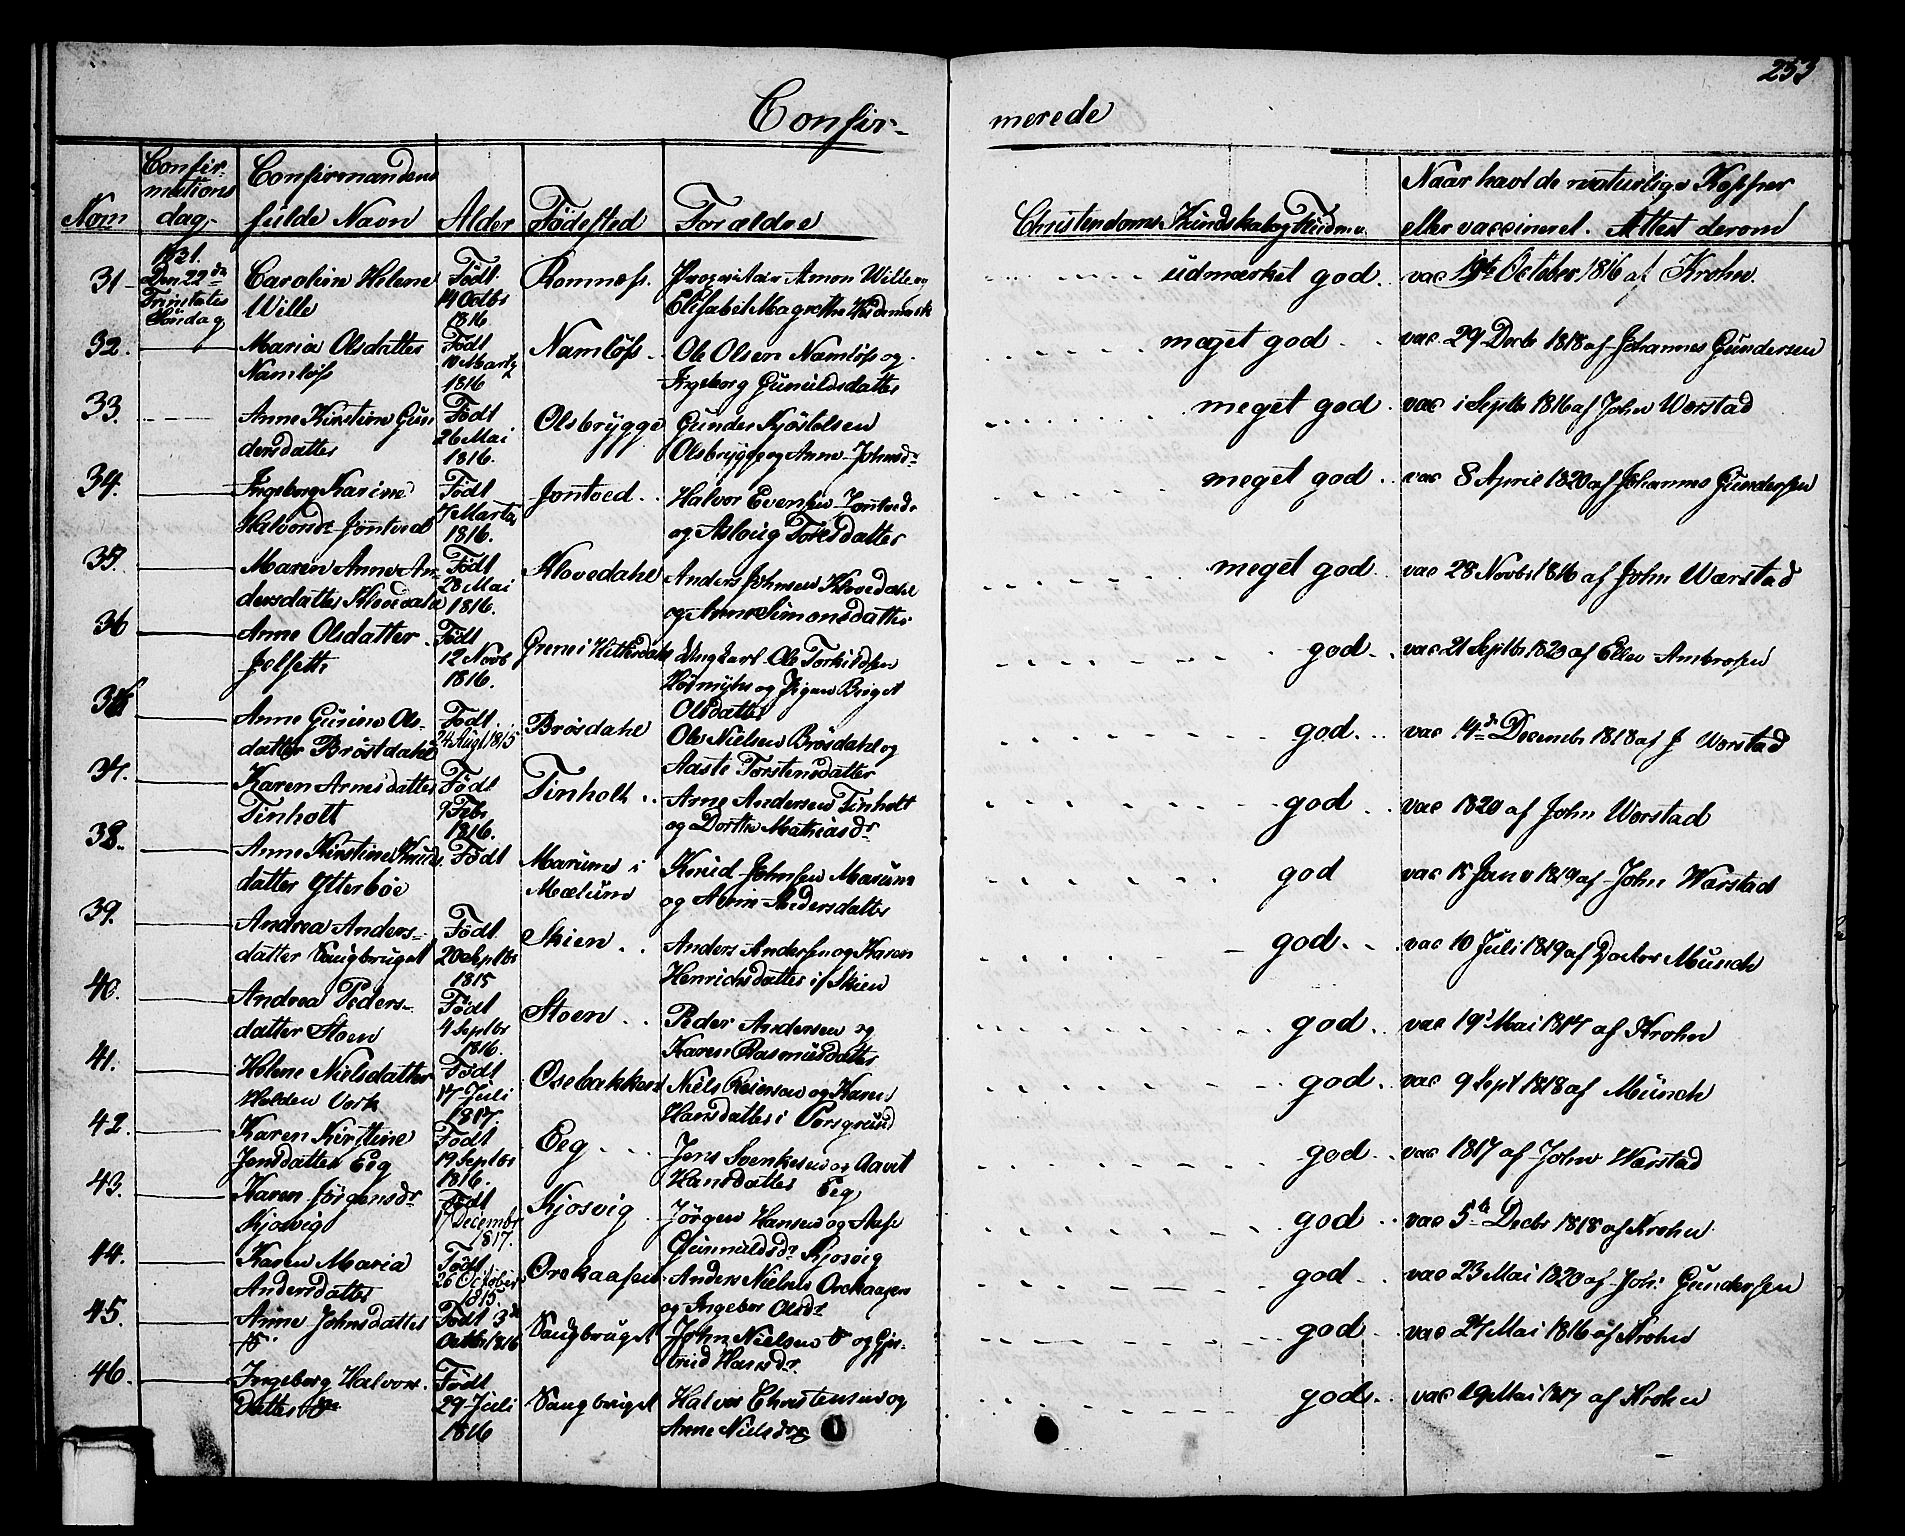 253
Confir-
merede
Nom
Confir-
mations
dag
Confirmandens
fulde Navn
Alder
Födested
Forældre
Christendoms Kundskab og Flid
Naar havt de naturlige Kopper
eller vaccineret. Attest derom
31
1831.
Den 22de
Trinitatis
Söndag
Carolin Helene
Wille
Födt
14 Octbr
1816
Romnæs.
Proprietair Arnon Wille og
Elisabet Magrethe
udmærket god.
vac 19de October 1816 af Krohn.
32.
Maria Olsdatter
Namløss
Födt
10 Marty
1816
Namløss.
Ole Olsen Namløss og
Ingeborg Gunuldsdatter
meget god
vac 29 Decbr 1818 af Johannes Gundersen
33.
Anne Kirstine Gun
dersdatter
Födt
26 Mai
1816.
Olsbrygge
Gunder Kjøstolsen
Olsbrygge og Anne Johnsdr
meget god.
vac i Septbr 1816 af John Worstad
34.
Ingeborg Karine
Halvorsdr Jöntved
Födt
7 Marty
1816.
Jontved.
Halvor Evensen Jontved
og Asloug Toresdatter
meget god.
vac 8 April 1820 af Johannes Gundersen
35.
Maren Anne An
dersdatter Klovedale
Födt
28 Mai
1816.
Klovedahl
Anders Johnsen Klovedahl
og Anne Simonsdatter
meget god.
vac 28 Novbr 1816 af John Wærstad
36
Anne Olsdatter
Jelsett
Födt
12 Novb
1816.
Grene i Hitterdahl
Ungkarl Ole Torkildsen
og Pigen Birget
Olsdatter
god.
vac 21 Septbr 1823 af Ellev Ambrosen
36
Anne Gurine Ols-
datter Brøsdahl
Födt
24 Augl 1815
Brøsdahl
Ole Nielsen Brøsdahl og
Aaste Torstensdatter
god.
vac 14de Decembr 1818 af J Worstad
37.
Karen Arnesdatter
Tinholt
Födt
9 Febr
1816.
Tinholt
Arne Andersen Tinholt
og Dorthe Mathiasdr
god
vac 1820 af John Worstad
38.
Anne Kirstine Knuds
datter Ytterböe
Födt
Marum i
Mælum
Knud Johnsen Marum
og Anne Pedersdatter
god
vac 15 Janv 1819 af John Wærstad
39.
Andrea Anders-
datter Saugbruget
Födt
20 Septbr
1815
Skien
Anders Andersen og Karen
Henrichsdatter i Skien
god.
vac 10 Juli 1819 af Doctor Munch
40.
Andrea Peders-
datter Stoen
Födt
4 Septbr
1816.
Stoen
Peder Andersen og
Karen Rasmusdatter
god.
vac 19 Mai 1817 af Krohn
41.
Helene Nielsdatter
Holden Verk
Födt
17 Juli
1817.
Osebakken
Niels Reiersen og Karen
Hansdatter i Porsgrund
god.
vac 9 Sept 1818 af Münch
42.
Karen Kirstine
Jensdatter Eeg
Födt
19 Septbr
1816.
Eeg
Jens Svenkesen og Aavit
Hansdatter Eeg
god.
vac 1817 af John Wærstad
43.
Karen Jörgensdr
Kjosvig
Födt
17 December
1817.
Kjosvig
Jörgen Hansen og Aase
Gunnuldsdr Kjosvig
god.
vac 5te Decbr 1818 af Krohn
44.
Karen Maria
Andersdatter
Födt
26 October
1815
Orekaasen
Anders Nielsen Orekaasen
og Ingebor Olsdr
god
vac 23 Mai 1820 af Joh: Gundersen
45.
Anne Johnsdatter
Födt 3de
Octbr 1816
Saugbruget
John Nielsen og Gjer-
trud Hansdr
god
vac 27 Mai 1816 af Krohn
46.
Ingeborg Halvors-
datter
Födt
29 Juli
1816
Saugbruget
Halvor Christensen og
Anne Nielsdr
god.
vac 19 Mai 1817 af Krohn